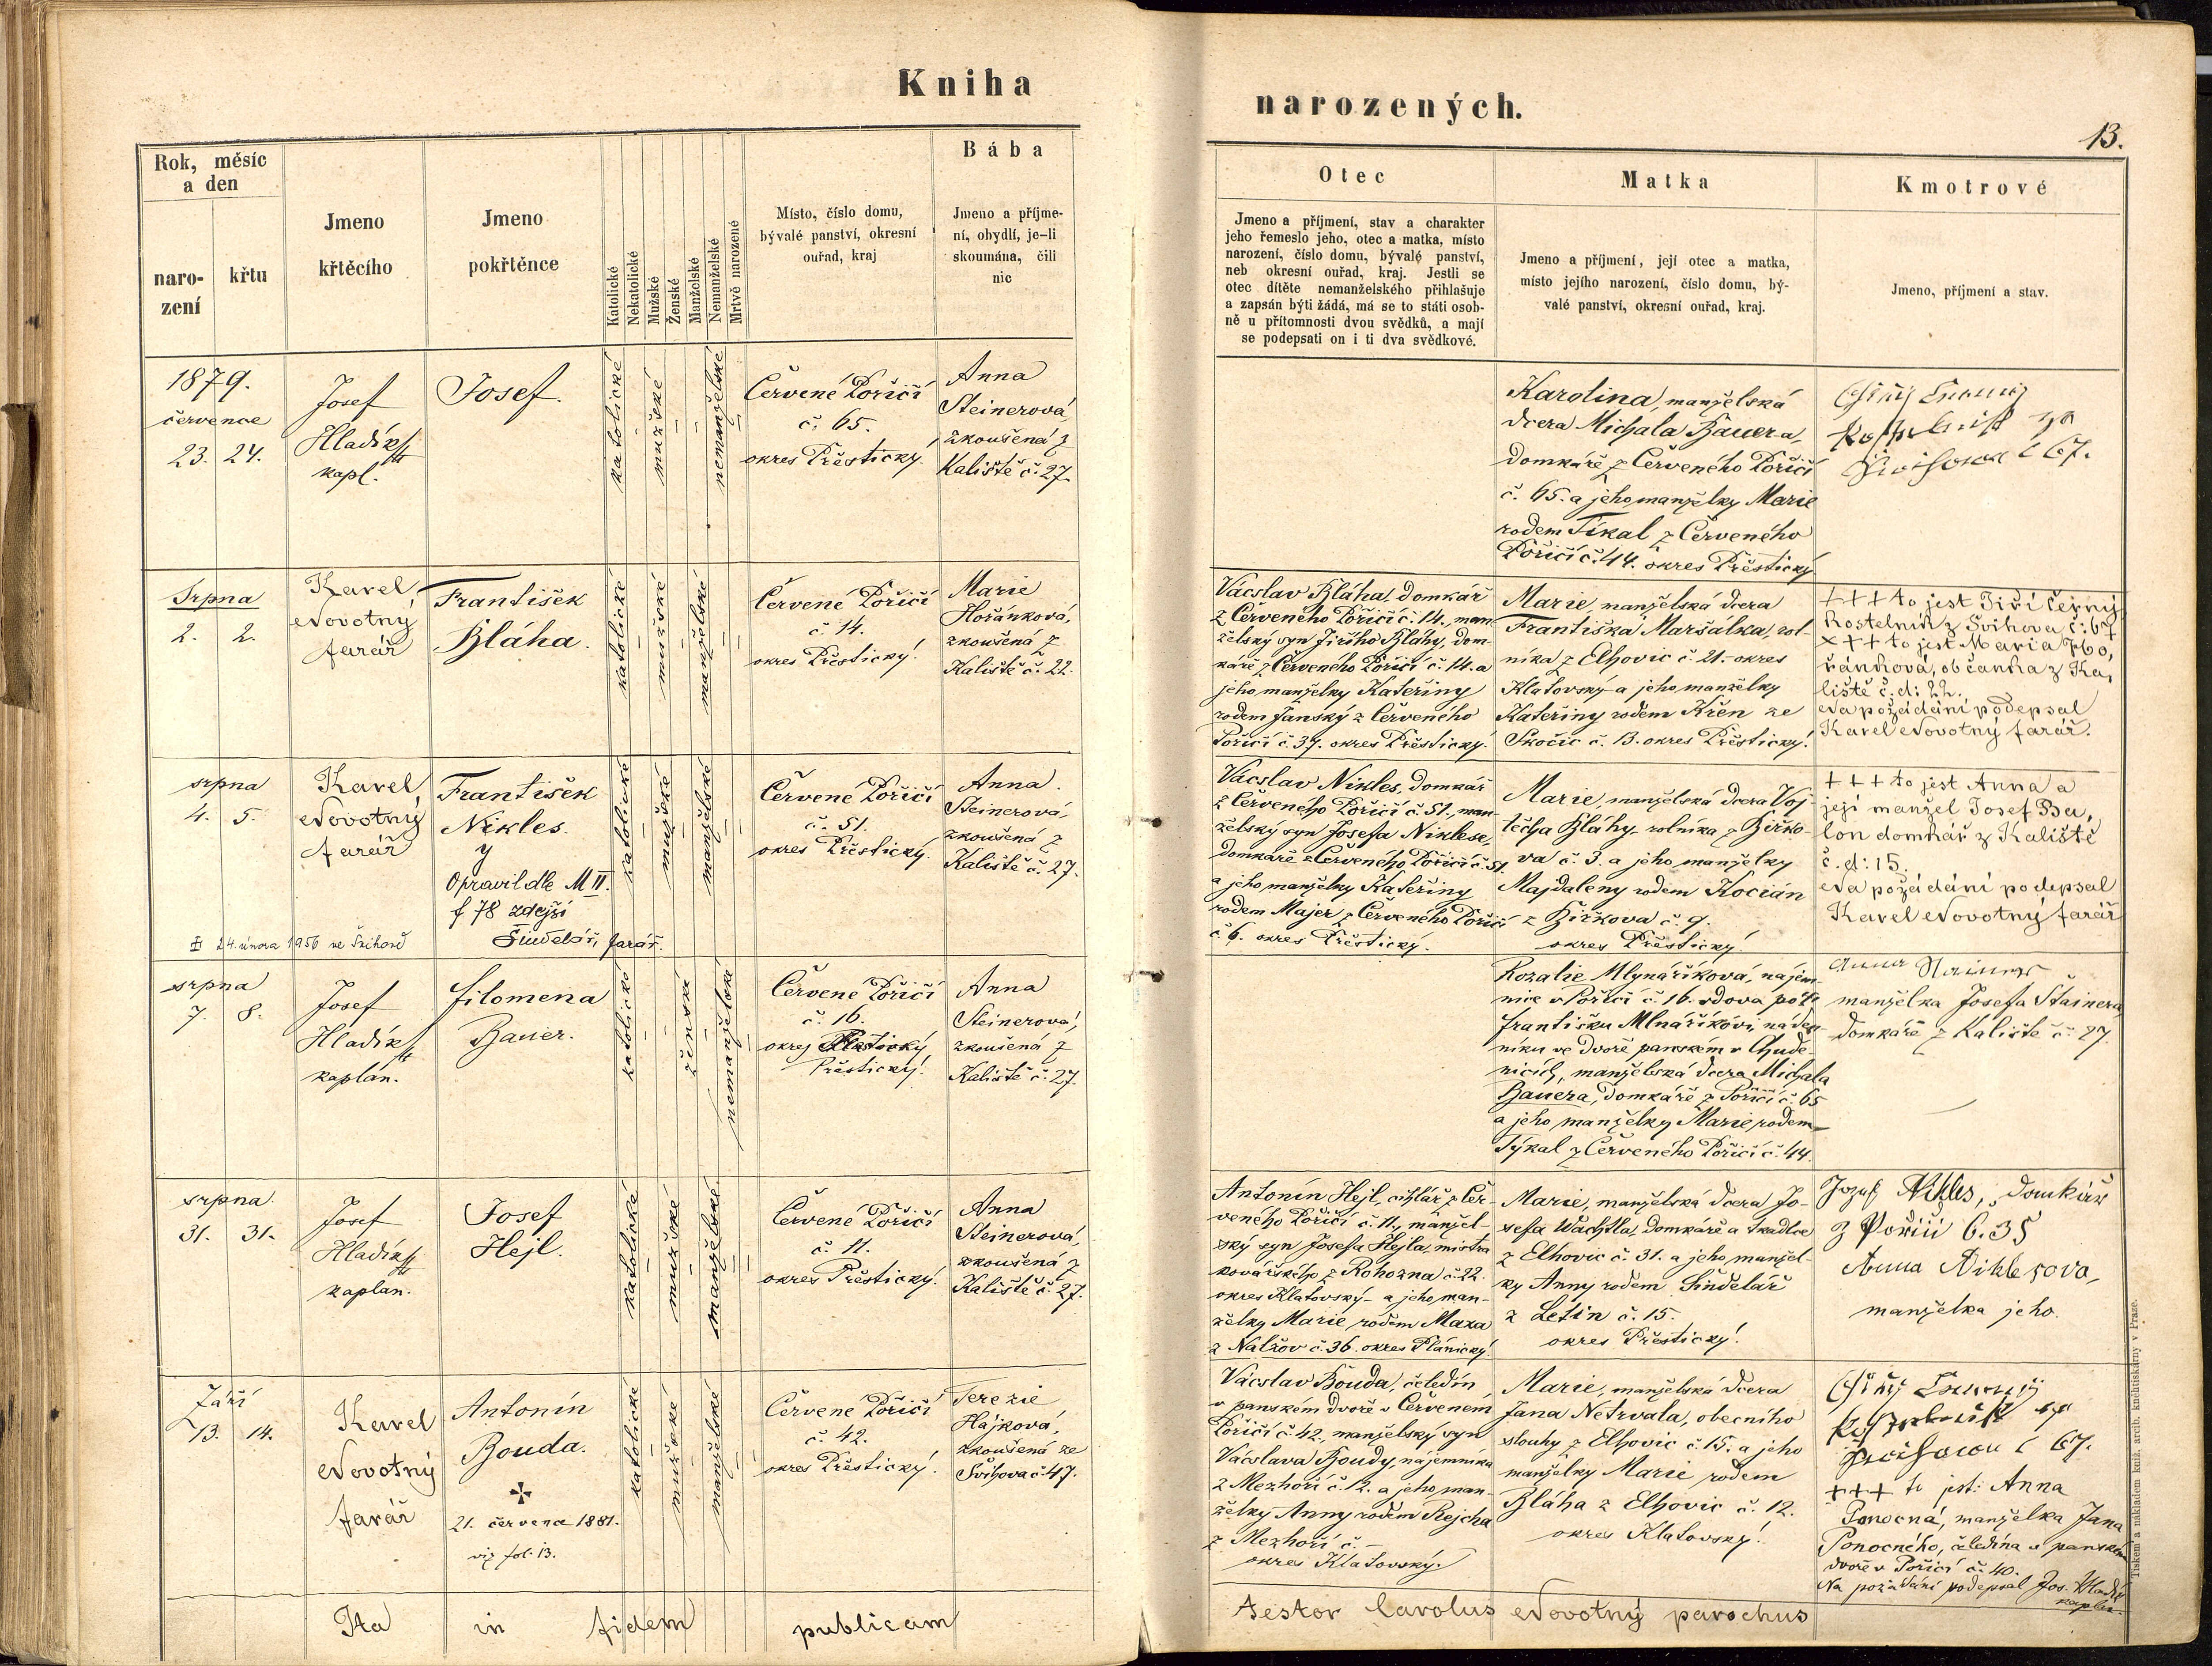 Kniha
narozených.
13.
Rok, měsíc
a den
naro-
zení
křtu
Jmeno
křtěcího
Jmeno
pokřtěnce
Katolické
Nekatolické
Mužské
Ženské
Manželské
Nemanželské
Mrtvě narozené
Místo, číslo domu,
bývalé panství, okresní
ouřad, kraj
Bába
Jmeno a příjme-
ní, obydlí, je-li
skoumána, čili
nic
Otec
Jmeno a příjmení, stav a charakter
jeho řemeslo jeho, otec a matka, místo
narození, číslo domu, bývalé panství,
neb okresní ouřad, kraj. Jestli se
otec dítěte nemanželského přihlašuje
a zapsán býti žádá, má se to státi osob-
ně u přítomnosti dvou svědků, a mají
se podepsati on i ti dva svědkové.
Matka
Jmeno a příjmení, její otec a matka,
místo jejího narození, číslo domu, bý-
valé panství, okresní ouřad, kraj.
Kmotrové
Jmeno, příjmení a stav.
1879.
července
23. 24.
Josef
Hladík
kapl.
Josef.
katolické
mužské
nemanželské
Červené Poříčí
č. 65.
okres Přěstický.
Anna
Steinerová,
zkoušená z
Kaliště č. 27.
Karolina, manželská
dcera Michala Bauera,
domkáře z Červeného Poříčí
č. 65. a jeho manželky Marie
rodem Tíkal z Červeného
Poříčí č. 44. okres Přěstický
č 67.
Srpna
2. 2.
Karel
Novotný
farář
František
Bláha.
katolické
mužské
manželské
Červené Poříčí
č. 14.
okres Přěstický.
Marie
Hořánková,
zkoušená z
Kaliště č. 22.
Vácslav Bláha, domkář
z Červeného Poříčí č. 14., man-
želský syn Jiřího Bláhy, dom-
káře z Červeného Poříčí č. 14. a
jeho manželky Kateřiny
rodem Janský z Červeného
Poříčí č. 37. okres Přěstický.
Marie, manželská dcera
Františka Maršálka, rol-
níka z Elhovic č. 21. okres
Klatovský a jeho manželky
Kateřiny rodem Křen ze
Skočic č. 13. okres Přěstický.
+++ to jest Jiří Černý
kostelník z Švihova č: 67
+++ to jest Maria Ho,
řánková, občanka z Ka,
liště č. d: 22.
Na požádání podepsal
Karel Novotný farář.
srpna
4. 5.
Karel
Novotný
farář
František
Nikles.
y
Opravil dle M II.
f 78 zdejší
Šindelář, farář.
24. února 1956 ve Švihově
katolické
mužské
manželské
Červené Poříčí
č. 51.
okres Přěstický.
Anna
Steinerová,
zkoušená z
Kaliště č. 27.
Vácslav Nikles, domkář
z Červeného Poříčí č. 51., man-
želský syn Josefa Niklese,
domkáře z Červeného Poříčí č. 51.
a jeho manželky Kateřiny
rodem Majer z Červeného Poříčí
č. 6. okres Přěstický.
Marie, manželská dcera Voj-
těcha Bláhy rolníka z Bižko-
va č. 3. a jeho manželky
Majdaleny rodem Kocián
z Bižkova č. 9.
okres Přěstický.
+++ to jest Anna a
její manžel Josef Ba,
lon domkář z Kaliště
č. d: 15.
Na požádání podepsal
Karel Novotný farář
srpna
7. 8.
Josef
Hladík
kaplan.
Filomena
Bauer.
katolické
ženské
nemanželské
Červené Poříčí
č. 16.
okres
Přěstický.
Anna
Steinerová,
zkoušená z
Kaliště č. 27.
Rozalie Mlynáříková, nájem-
nice v Poříčí č. 16. vdova po †
Františku Mlnáříkovi, náden-
níku ve dvoře panském v Chude-
nicích, manželská dcera Michala
Bauera, domkáře z Poříčí č. 65
a jeho manželky Marie rodem
Týkal z Červeného Poříčí č. 44.
Anna
manželka Josefa Štainera
domkáře z Kaliště č. 27.
srpna
31. 31.
Josef
Hladík
kaplan.
Josef
Hejl.
katolické
mužské
manželské
Červené Poříčí
č. 11.
okres Přěstický.
Anna
Steinerová,
zkoušená z
Kaliště č. 27.
Antonín Hejl, cihlář z Čer-
veného Poříčí č. 11., manžel-
ský syn Josefa Hejla, mistra
kovářského z Rohozna č. 22.
okres Klatovský - a jeho man-
želky Marie rodem Maxa
z Nalžov č. 36. okres Plánický.
Marie, manželská dcera Jo-
sefa Wachtla, domkáře a tkadlce
z Elhovic č. 31. a jeho manžel-
ky Anny rodem Šindelář
z Letin č. 15.
okres Přěstický.
Jozef Nikles, domkář
z Poříčí č. 35
Anna Niklesova,
manželka jeho.
Září
13. 14.
Karel
Novotný
farář
Antonín
Bouda.
21. července 1881.
viz fol. 13.
katolické
mužské
manželské
Červené Poříčí
č. 42.
okres Přěstický.
Terezie
Hájková,
zkoušená ze
Švihova č. 47.
Vácslav Bouda, čeledín
v panském dvoře v Červeném
Poříčí č. 42, manželský syn
Vácslava Boudy, nájemníka
z Mezhoří č. 12. a jeho man-
želky Anny rodem Rejcha
z Mezhoří č. -
okres Klatovský.
Marie, manželská dcera
Jana Netrvala, obecního
slouhy z Elhovic č. 15. a jeho
manželky Marie rodem
Bláha z Elhovic č. 12.
okres Klatovský.
č 67.
+++ to jest: Anna
Ponocná, manželka Jana
Ponocného, čeledína v panském
dvoře v Poříčí č. 40.
Na požádání podepsal Jos. Hladík
kaplan.
Ita in fidem publicam
testor Carolus Novotný parochus
Tiskem a nákladem kníž. arcib. knihtiskárny v Praze.